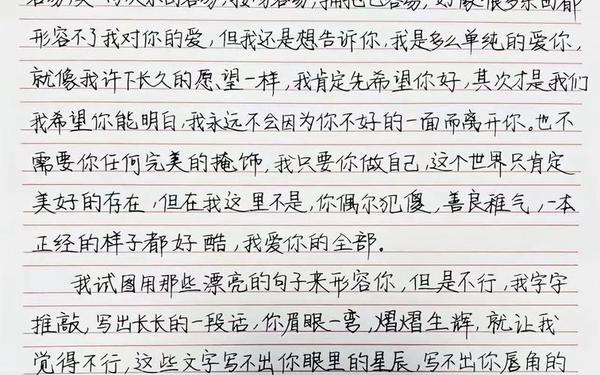 容易，拥抱也容易，好像很多东西都
形容不了我对你的爱，但我还是想告诉你，我是多么单纯的爱你，
就像我许下长久的愿望一样，我肯定先希望你好，其次才是我们
我希望你能明白，我永远不会因为你不好的一面而离开你。也不
需要你任何完美的掩饰，我只要你做自己，这个世界只肯定
美好的存在，但在我这里不是，你偶尔犯傻，善良稚气，一本
正经的样子都好酷，我爱你的全部。
我试图用那些漂亮的句子来形容你，但是不行，我字字
推敲，写出长长的一段话，你眉眼一弯，熠熠生辉，就让我
觉得不行，这些文字写不出你眼里的星辰，写不出你唇角的